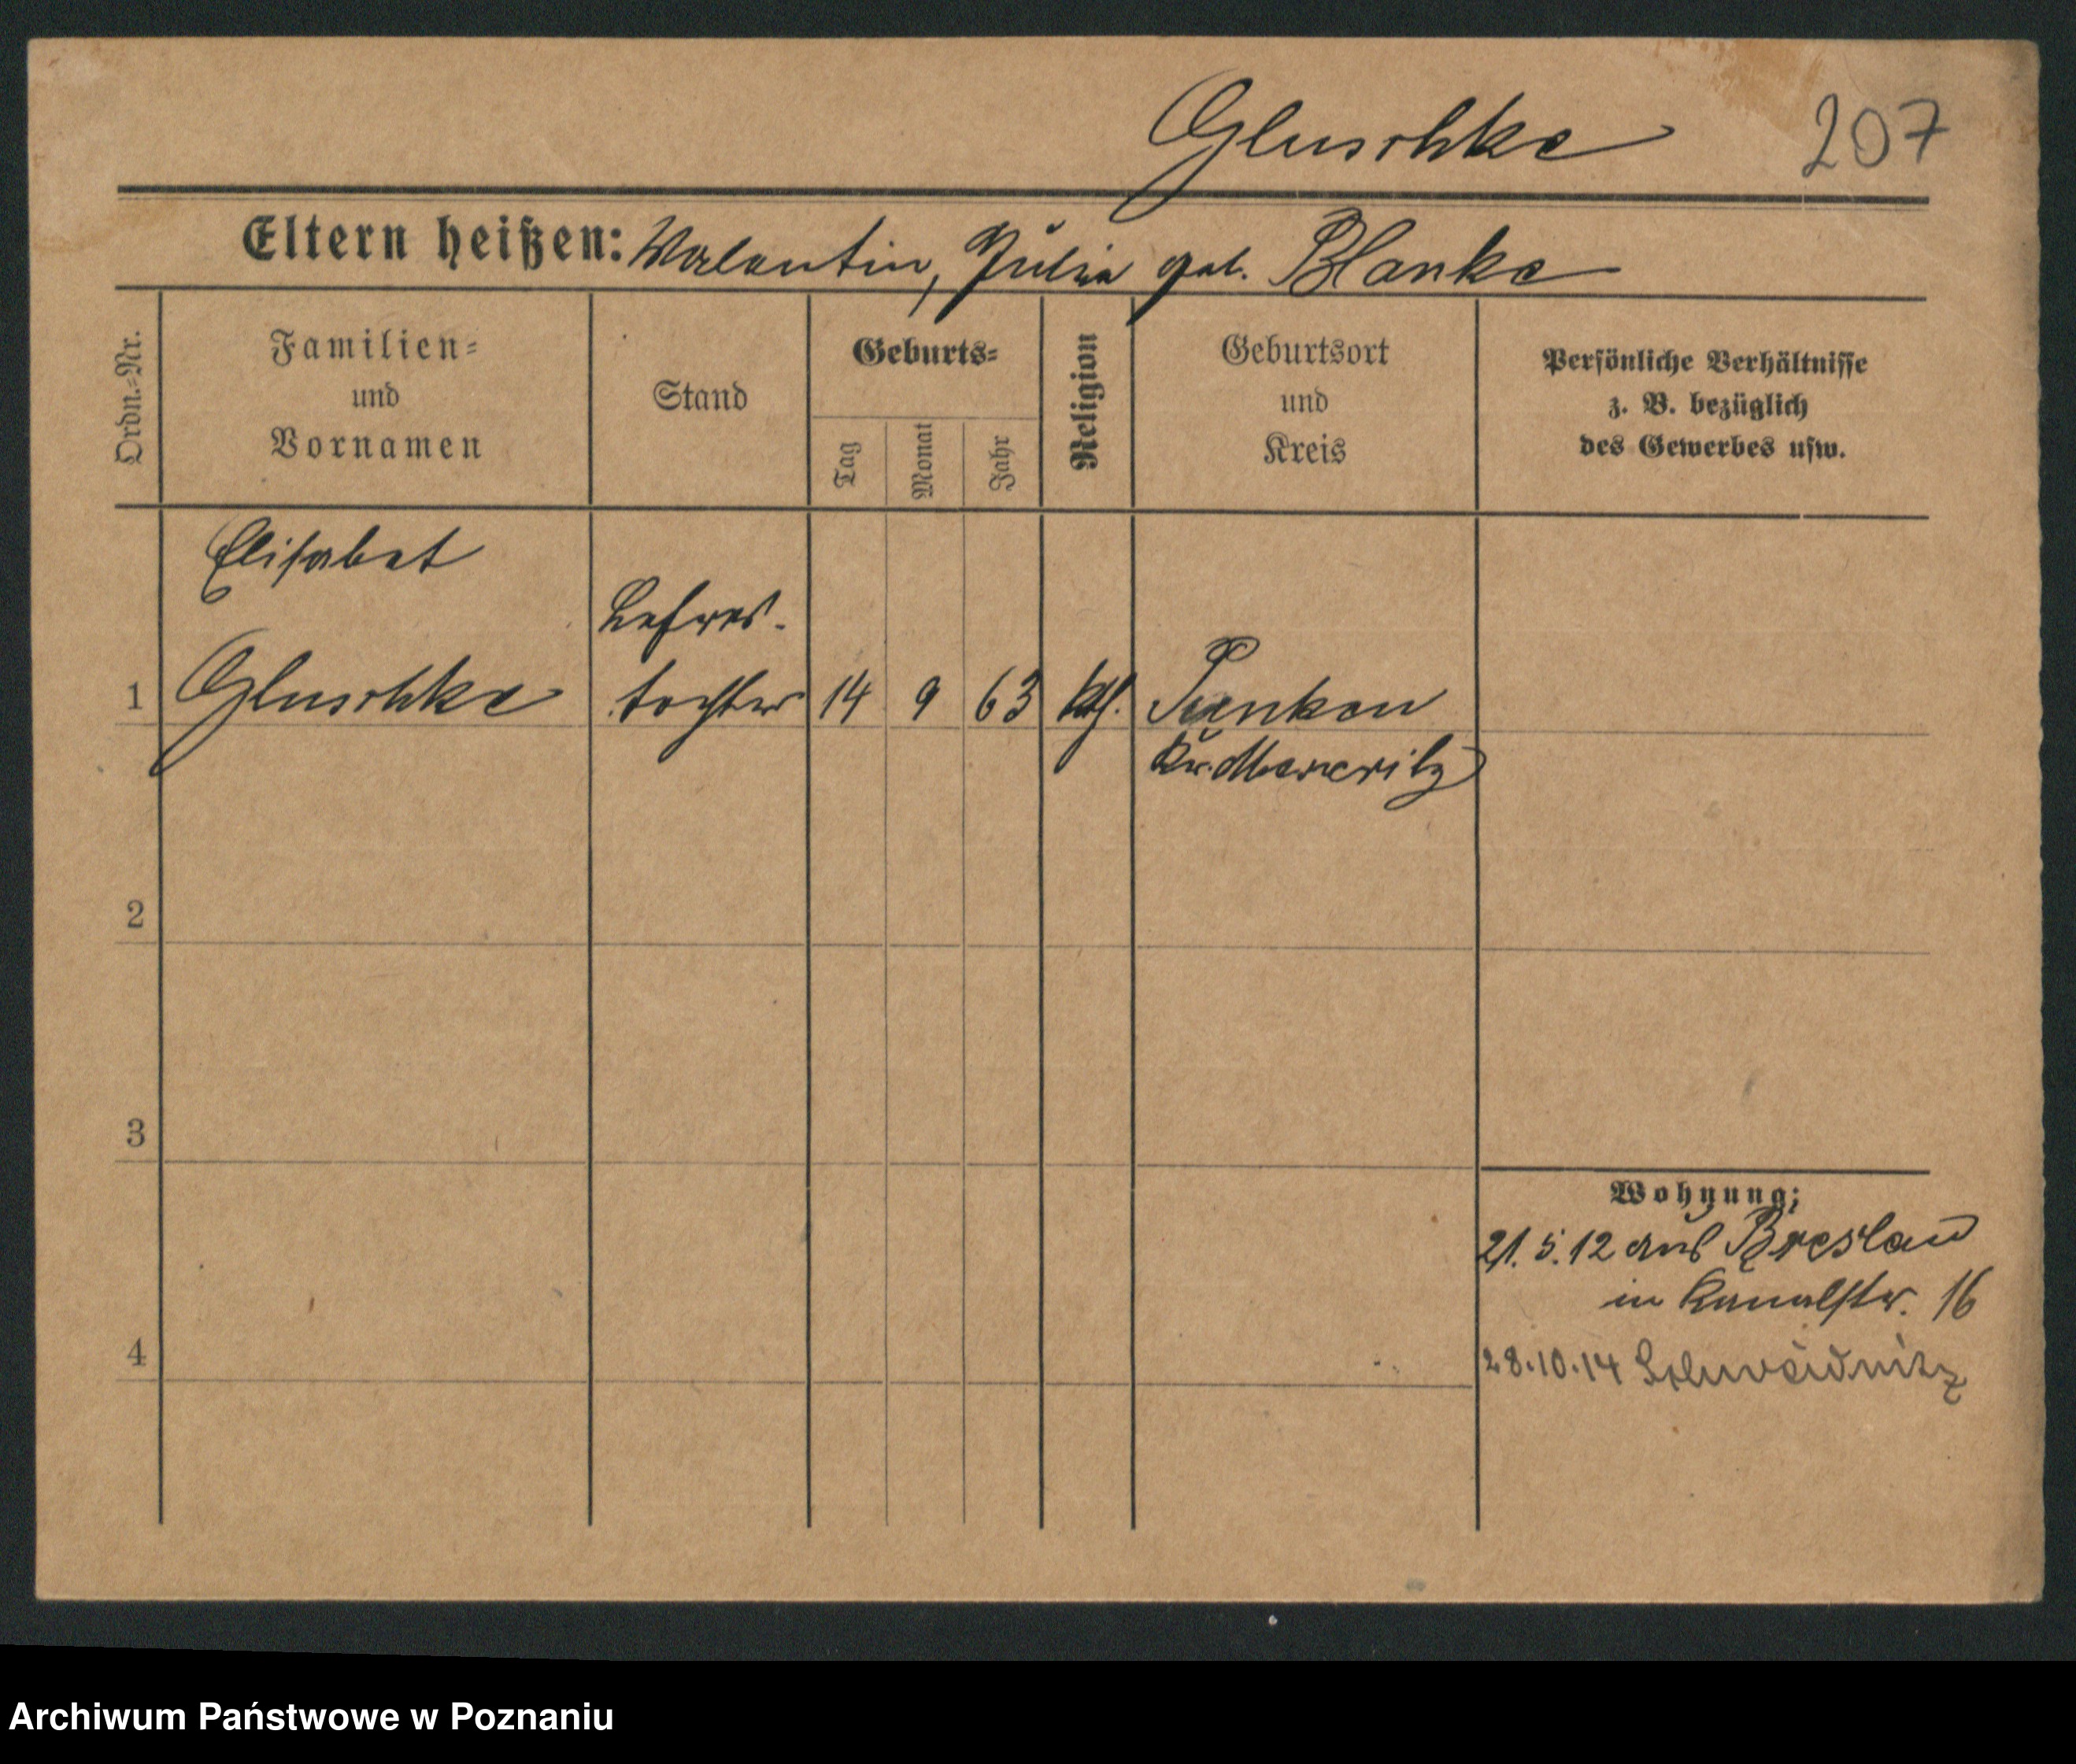 Gluschke 207
Eltern heißen: Valentin, Julia geb. Blanke
Ordn.-Nr.
Familien-
und
Vornamen
Stand
Geburts-
Tag
Monat
Jahr
Religion
Geburtsort
und
Kreis
Persönliche Verhältnisse
z. B. bezüglich
des Gewerbes usw.
Elisabet
Lehrers-
1 Gluschke tochter 14 9 63 kth.
Kr. Meseritz
2
3
Wohnung:
21.5.12 aus Breslau
in Kanalstr. 16
4 28.10.14 Schweidnitz
Archiwum Państwowe w Poznaniu